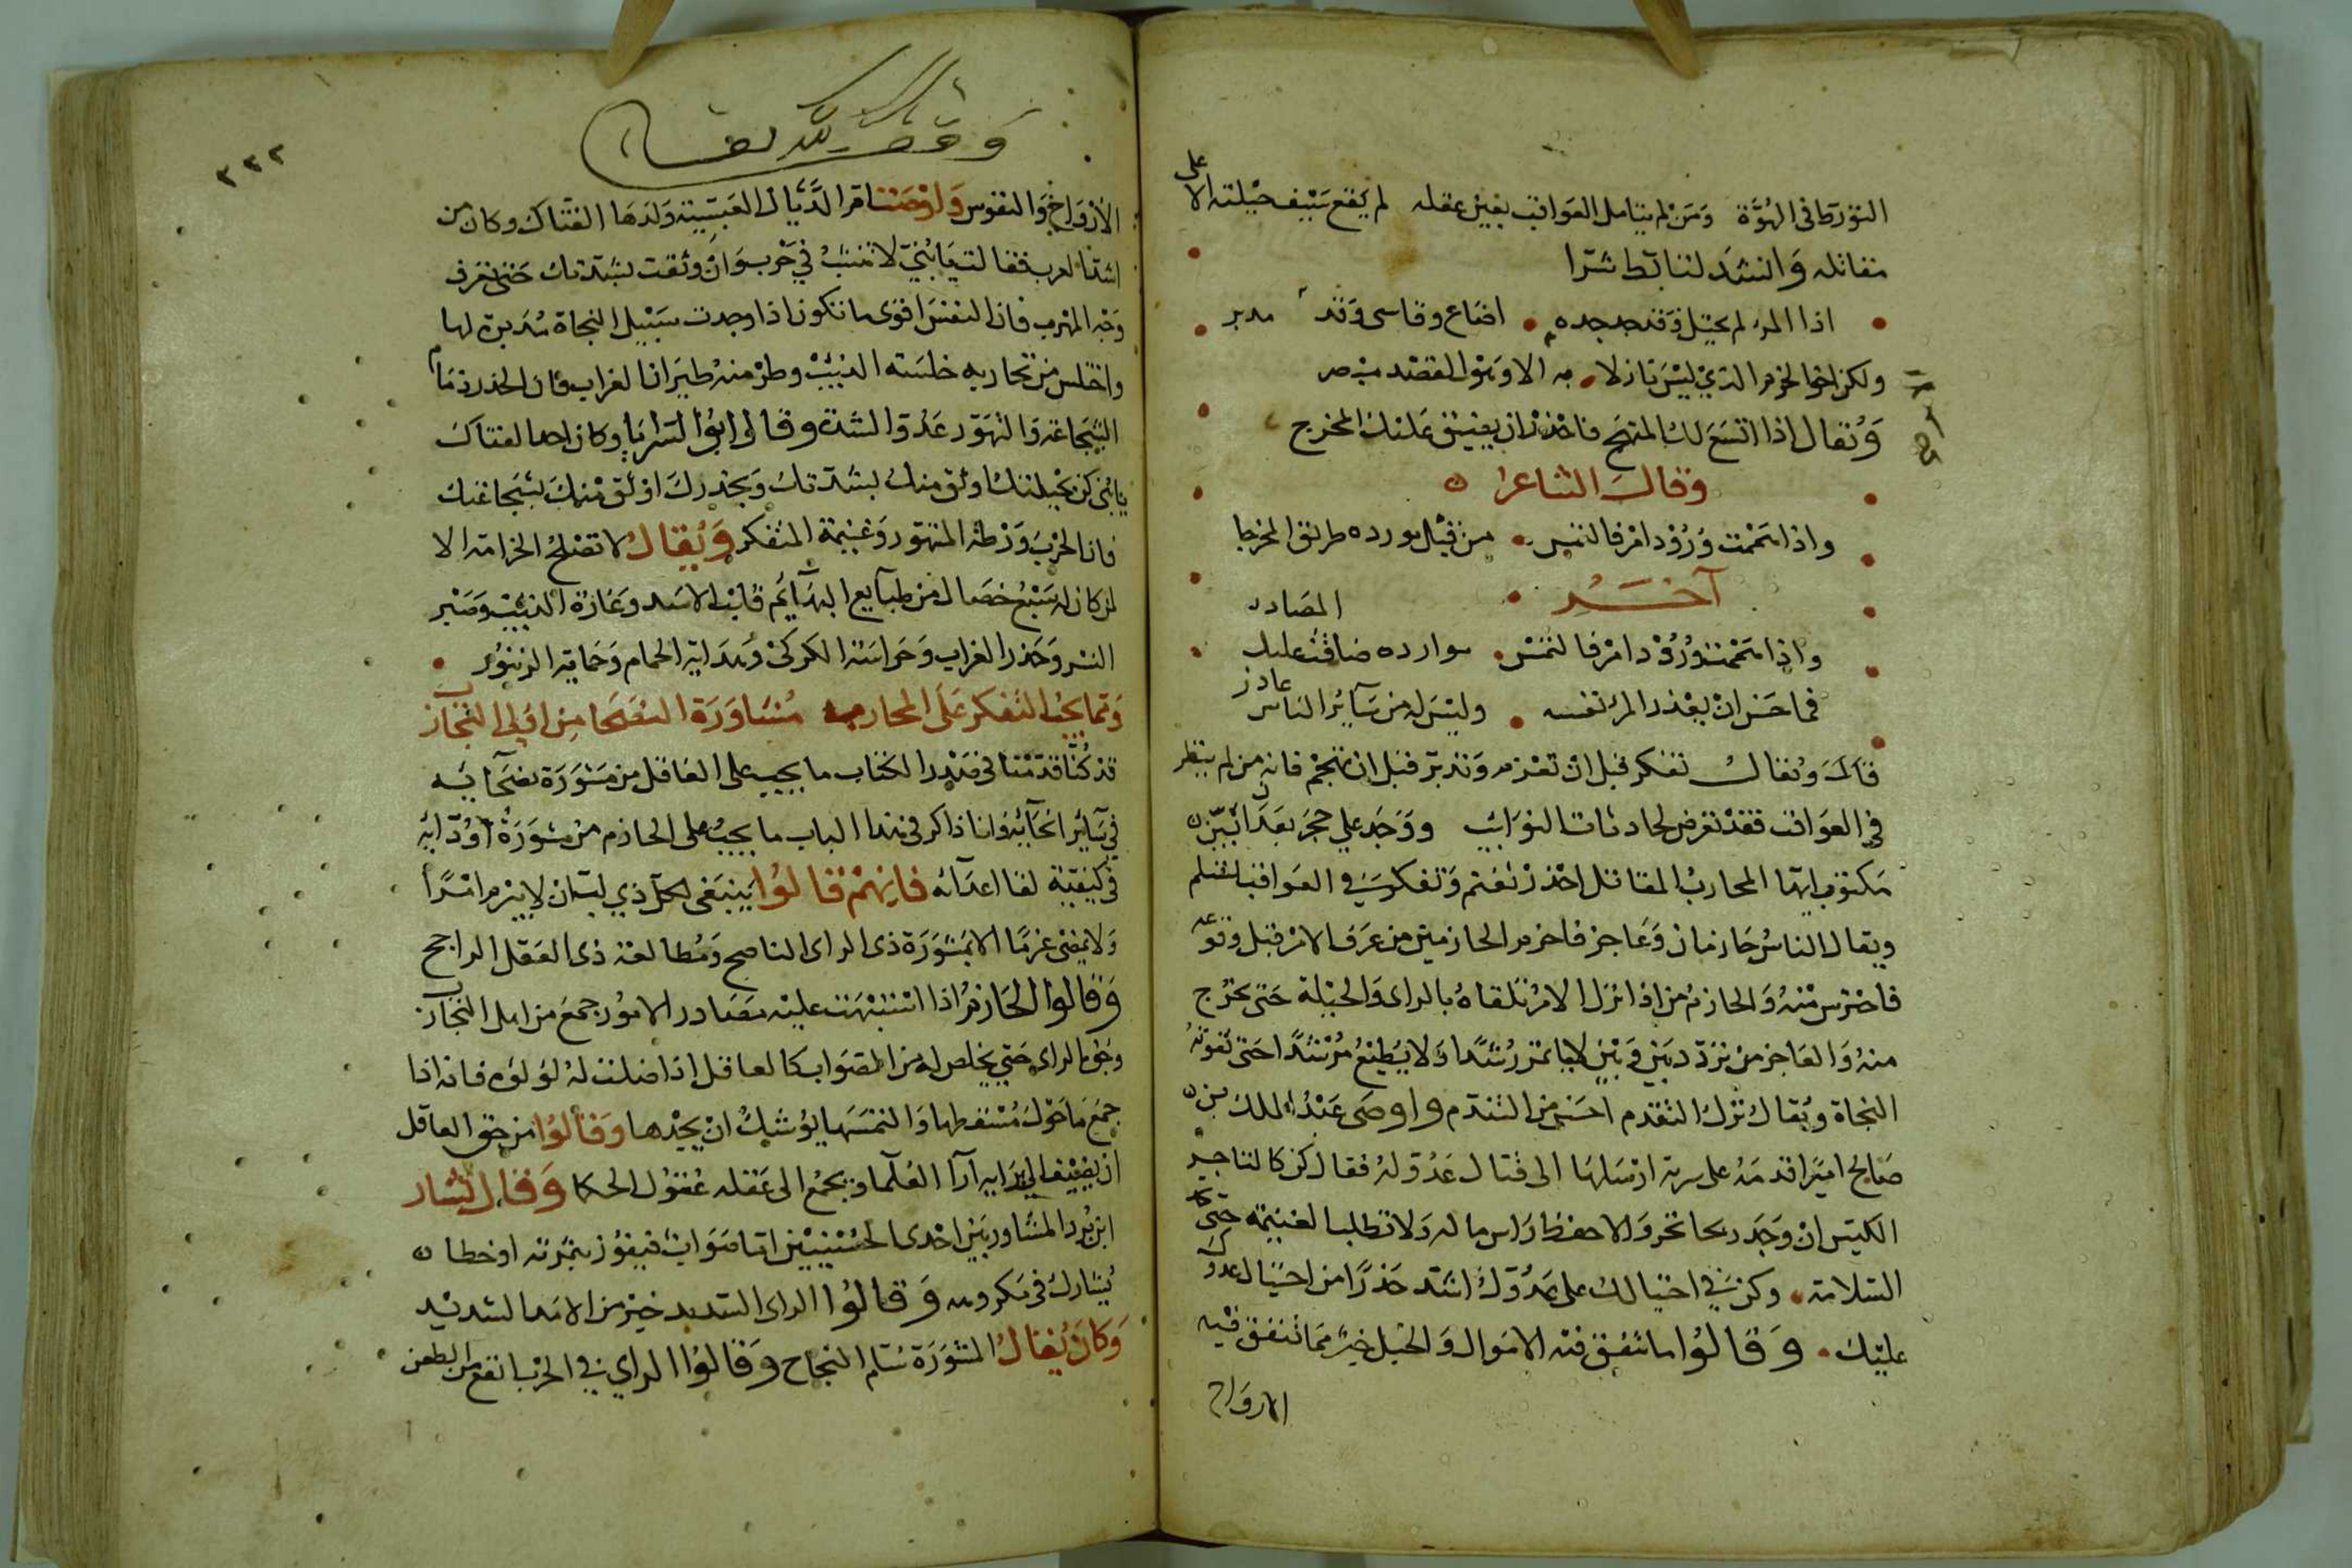 التورط في الهوة ومن لم يتامل العواقب بعين عقله لم يقع سيف حيلته الا على
مقاتله وانشد لتابط شرا
اذا المرء لم يحتل وقد جد جده اضاع وقاسى وقد مدبر
ولكن اخو الحزم الذي ليس نازلا به الا وهو للقصد مبصر
ويقال اذا اتسع لك المنهج فاحذر ان يضيق عليك المخرج
وقال الشاعر
واذا هممت ورود امر فالتمس من قبل مورده طريق المخرجا
آخر
واذا هممت ورود امر فالتمس موارده ضاقت عليك المصادر
فما حسن ان يعذر المرء نفسه وليس له من سآئر الناس عاذر
قال ويقال تفكر قبل ان تعزم وتدبر قبل ان تهجم فانه من لم ينظر
في العواقب فقد تعرض لحادثات النوائب ووجد على حجر
مكتوب ايها المحارب المقاتل احذر تغنم وتفكر في العواقب تسلم
ويقال الناس حازمان وعاجز فاحزم الحازمين من عرف الامر قبل وقوعه
فاحترس منه والحازم من اذا نزل الامر تلقاه بالراى والحيلة حتى يخرج
منه والعاجز من تردد بين وبين لا ياتمر رشدا ولا يطيع مرشدا حتى تفوته
النجاة ويقال ترك التقدم احسن من التندم واوصى عبد الملك بن
صالح اميرا قدمه على سرية ارسلها الى قتال عدو له فقال كن كالتاجر
الكيس ان وجد ربحا تجر والا حفظ راس ماله ولا تطلب الغنيمة حتى
السلامة وكن في احتيالك على عدوك اشد حذرا من احتيال عدوك
عليك وقالوا ما تنفق فيه الاموال والحيل خير مما تنفق فيه
الارواح
وقف لله تعالى
٢٣٣
الارواح والنفوس واوصت ام الذيال العبسية ولدها الفتاك وكان من
اشد العرب فقالت يا بني لا تنشب في حرب وان وثقت بشدتك حتى تعرف
وجه المهرب فان النفس اقوى ما تكون اذا وجدت سبيل النجاة مدبرة لها
واختلس من تحاربه خلسة الذيب وطر منه طيران الغراب فان الحذر زمام
الشجاعة والتهور عدو الشدة وقال ابو السرايا وكان احد الفتاك
يا بني كن بحيلتك اوثق منك بشدتك وبحذرك اوثق منك بشجاعتك
فان الحرب ورطة المتهور وغنيمة المتفكر ويقال لا تصلح الحزامة الا
لمن كان له سبع خصال من طبايع البهآيم قلب الاسد وغارة الذيب وصبر
النسر وحذر الغراب وحراسة الكركى وهداية الحمام وحماية الزنبور
ومما يجب التفكر على المحارب مشاورة النصحا من اولى التجارب
قد كنا قدمنا في صدر الكتاب ما يجب على العاقل من مشورة نصحآيه
في سآئر انحآئه وانا ذاكر في هذا الباب ما يجب على الحازم من مشورة اودآئه
في كيفية لقا اعدآئه فانهم قالوا ينبغى لكل ذي لب ان لا يبرم امرا
ولا يمضى عزما الا بمشورة ذى الراى الناصح ومطالعة ذى العقل الراجح
وقالوا الحازم اذا اشتبهت عليه مصادر الامور جمع من اهل التجارب
وجوه الراى حتى يخلص له من الصواب كالعاقل اذا ضلت له لؤلؤه فانه اذا
جمع ما حول مسقطها والتمسها يوشك ان يجدها وقالوا من حق العآقل
ان يضيف الى رايه آرآ العلما ويجمع الى عقله عقول الحكما وقال بشار
ابن برد المشاور بين احدى الحسنيين اما صواب فيفوز بثمرته او خطا
يشارك في مكروهه وقالوا الراى السديد خير من الاسد الشديد
وكان يقال المشورة سلم النجاح وقالوا الراي في الحرب انفع من الطعن